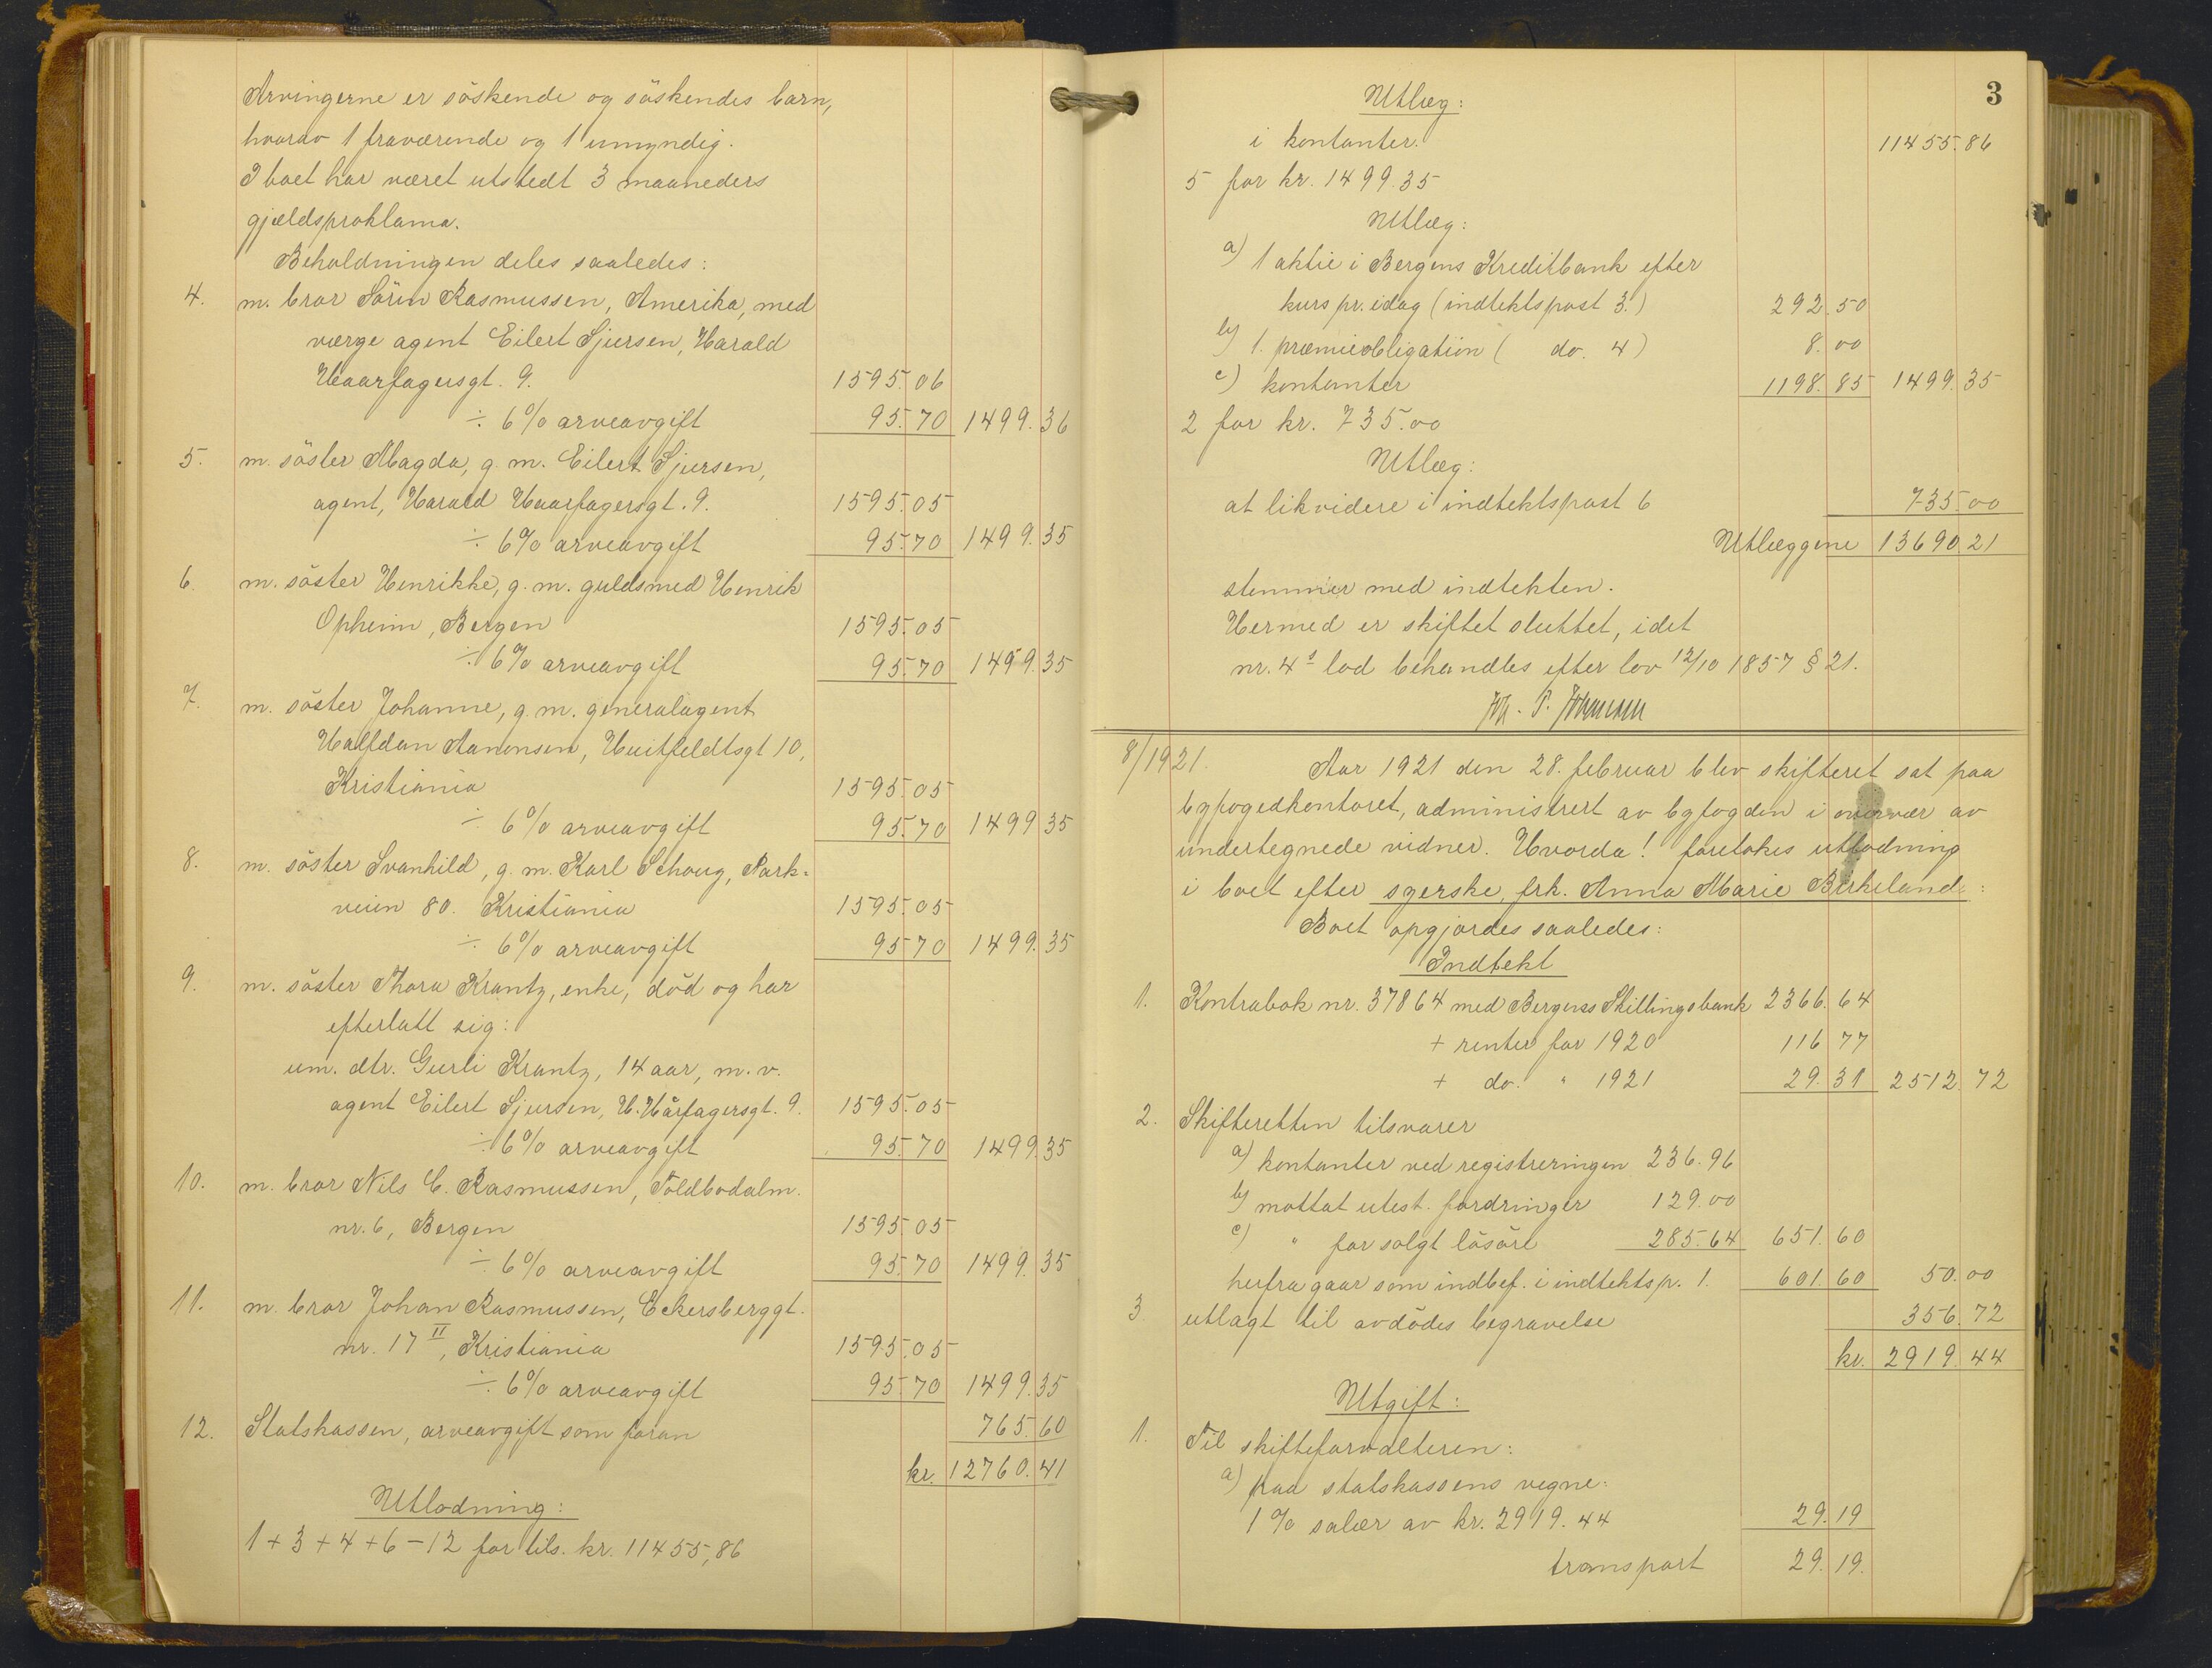 Arvingerne er söskende og söskendes barn,
hvorav 1 fraværende og 1 umyndig.
I boet har været utstedt 3 maaneders
gjældsproklama.
Beholdningen deles saaledes:
4. m. bror Sören Rasmussen, Amerika, med
værge agent Eilert Sjursen, Harald
Haarfagersgt. 9. 1595.06
÷ 6% arveavgift 95.70 1499.36
5. m. söster Magda, g. m. Eilert Sjursen,
agent, Harald Haarfagersgt. 9. 1595.05
÷ 6% arveavgift 95.70 1499.35
6. m. söster Henrikke, g. m. guldsmed Henrik
Opheim, Bergen 1595.05
÷ 6% arveavgift 95.70 1499.35
7. m. söster Johanne, g. m. generalagent
Halfdan Aanonsen, Huitfeldtsgt 10,
Kristiania 1595.05
÷ 6% arveavgift 95.70 1499.35
8. m. söster Svanhild, g. m. Karl Schoug, Park=
veien 80. Kristiania 1595.05
÷ 6% arveavgift 95.70 1499.35
9. m. söster Thora Krantz, enke, död og har
efterlatt sig:
um. dtr. Gurli Krantz, 14 aar, m. v.
agent Eilert Sjursen, H. Hårfagersgt. 9. 1595.05
÷ 6% arveavgift 95.70 1499.35
10. m. bror Nils C. Rasmussen, Toldbodalm.
nr. 6, Bergen 1595.05
÷ 6% arveavgift 95.70 1499.35
11. m. bror Johan Rasmussen, Eckersberggt.
nr. 17 II, Kristiania 1595.05
÷ 6% arveavgift 95.70 1499.35
12. Statskassen, arveavgift som foran 765.60
kr. 12760.41
Utlodning:
1 + 3 + 4 + 6 - 12 for tils. kr. 11455,86
3
Utlæg:
i kontanter. 11455.86
5 for kr. 1499.35
Utlæg:
a) 1 aktie i Bergens Kreditbank efter
kurs pr. idag (indtektspost 3.) 292.50
b) 1. præmieobligation ( do. 4) 8.00
c) kontanter 1198.85 1499.35
2 for kr. 735.00
Utlæg:
at likvidere i indtektspost 6 735.00
Utlæggene 13690.21
stemmer med indtekten.
Hermed er skiftet sluttet, idet
nr. 4s lod behandles efter lov 12/10 1857 § 21.
8/1921. Aar 1921 den 28. februar blev skifteret sat paa
byfogedkontoret, administrert av byfogden i overvær av
undertegnede vidner. Hvorda! foretokes utlodning
i boet efter syerske, frk. Anna Marie Birkeland:
Boet opgjordes saaledes:
Indtekt
1. Kontrabok nr. 37864 med Bergens Skillingsbank 2366.64
+ renter for 1920 116.77
+ do. " 1921 29.31 2512.72
2. Skifteretten tilsvarer
a) kontanter ved registreringen 236.96
b) mottat utest. fordringer 129.00
c) " for solgt lösöre 285.64 651.60
herfra gaar som indbef. i indtektsp. 1. 601.60 50.00
3 utlagt til avdödes begravelse 356.72
kr. 2919.44
Utgift:
1. Til skifteforvalteren:
a) paa statskassens vegne:
1% salær av kr. 2919.44 29.19
transport 29.19.